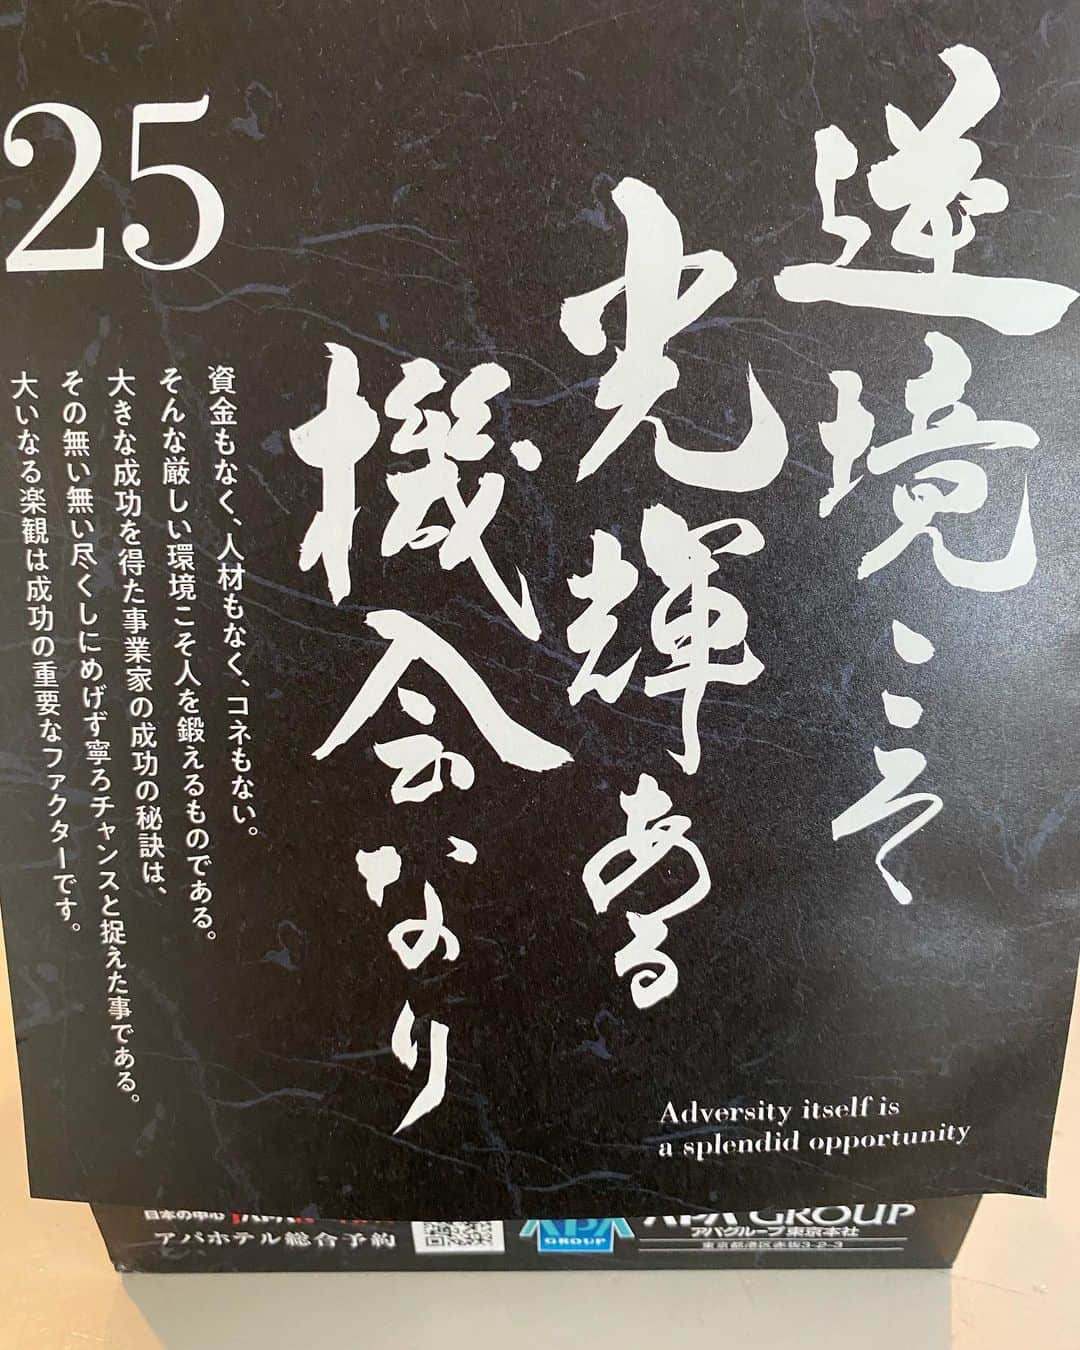 逆境こそ
光輝ある
機会なり
25
資金もなく、人材もなく、コネもない。
そんな厳しい環境こそ人を鍛えるものである。
大きな成功を得た事業家の成功の秘訣は、
その無い無い尽くしにめげず寧ろチャンスと捉えた事である。
大いなる楽観は成功の重要なファクターです。
Adversity itself is
a splendid opportunity
日本の中心
アパホテル総合予約
APA
GROUP
APA GROUP
アパグループ東京本社
東京都港区赤坂3-2-3